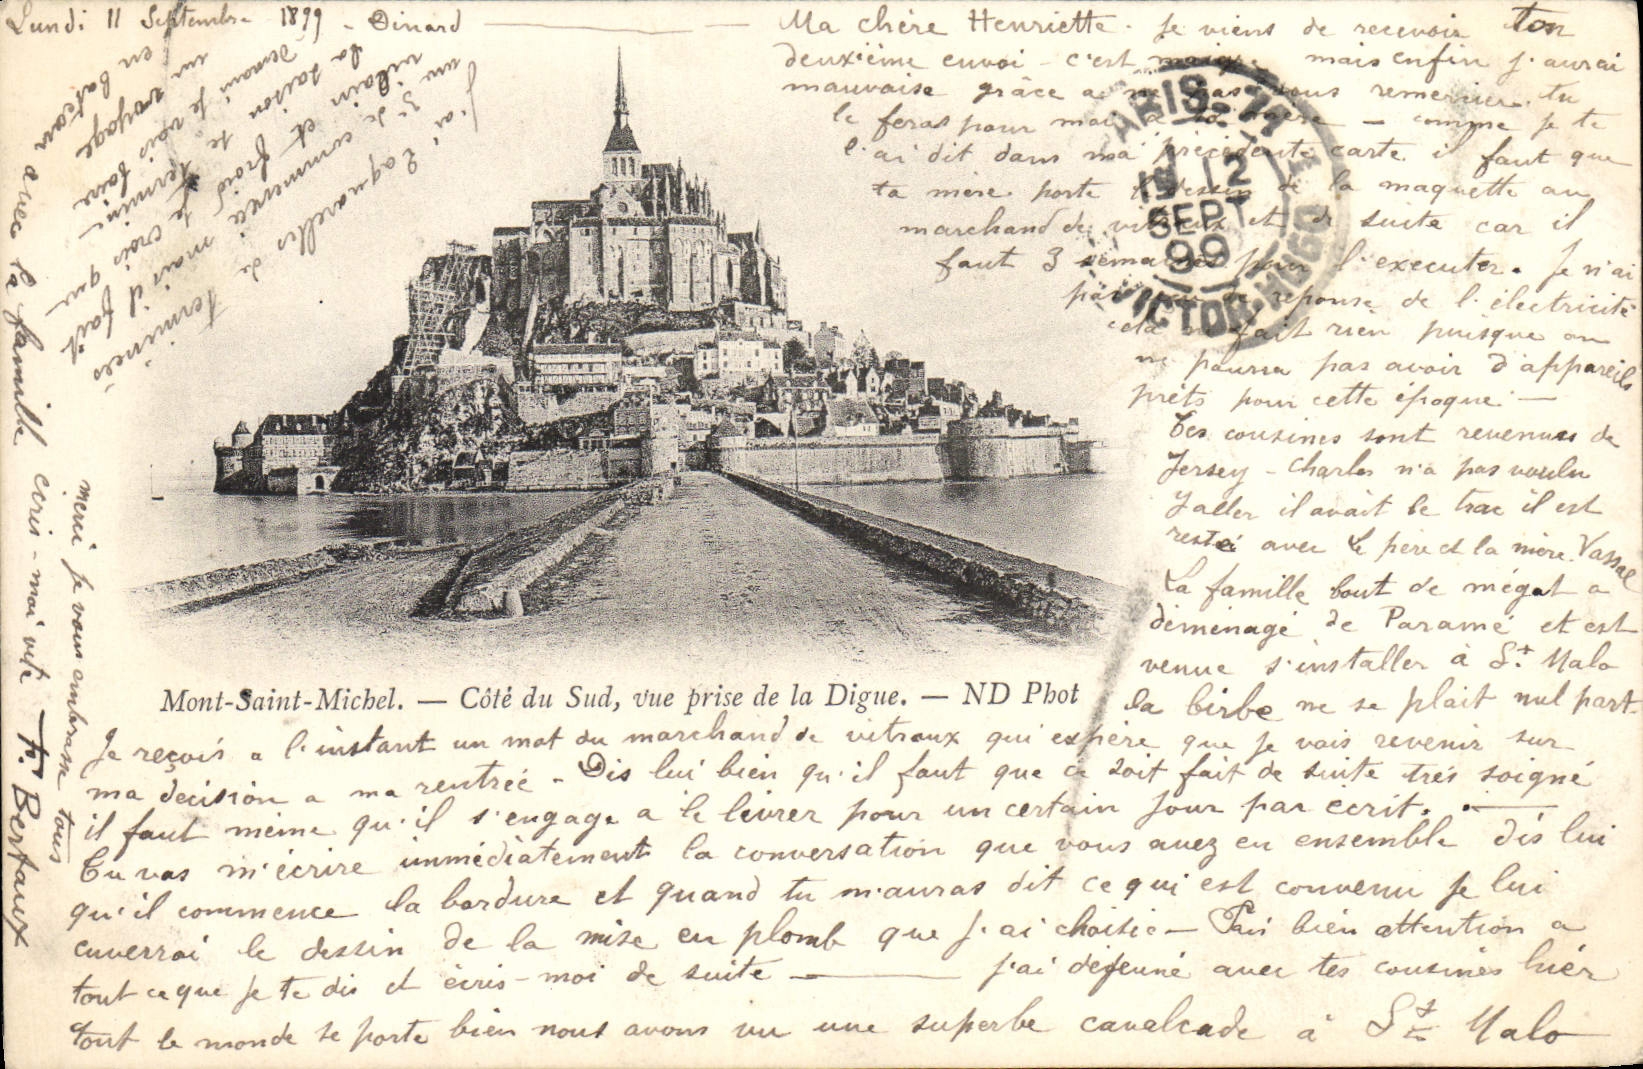 Lundi 11 Septembre 1899 - Dinard
Ma chère Henriette. Je viens de recevoir ton
deuxième envoi - c'est maigre mais enfin j'aurai
mauvaise grâce a ne pas vous remercier. tu
le feras pour moi a ta mère - comme je te
l'ai dit dans ma précédente carte il faut que
ta mère porte le dessin de la maquette au
marchand de vitraux et de suite car il
faut 3 semaines pour l'executer. Je n'ai
pas eu de reponse de l'électricité
cela ne fait rien puisque on
ne pourra pas avoir d'appareils
prêts pour cette époque -
Tes cousines sont revenues de
Jersey - Charles n'a pas voulu
y aller il avait le trac il est
resté avec le père et la mère Vassal
La famille bout de mégot a
déménagé de Paramé et est
venue s'installer à St. Malo
la birbe ne se plait nul part-
PARIS
12
SEPT
99
VICTOR-HUGO
Mont-Saint-Michel. — Côté du Sud, vue prise de la Digue. — ND Phot
Je reçois a l'instant un mot du marchand de vitraux qui espère que je vais revenir sur
ma décision a ma rentrée - Dis lui bien qu'il faut que ce soit fait de suite très soigné
il faut même qu'il s'engage a le livrer pour un certain jour par écrit.
Tu vas m'écrire immédiatement la conversation que vous avez eu ensemble dis lui
qu'il commence la bordure et quand tu m'auras dit ce qui est convenu je lui
enverrai le dessin de la mise en plomb que j'ai choisie - Fais bien attention a
tout ce que je te dis et écris-moi de suite — j'ai déjeuné avec tes cousines hier
tout le monde se porte bien nous avons vu une superbe cavalcade à St Malo
J'ai 2 aquarelles de terminées
un 3e de commencée mais il fait
vilain et froid je crois que
la saison se termine
demain je vais faire
un voyage
en bateau
avec la famille écris-moi vite - F. Bertaux
merci je vous embrasse tous